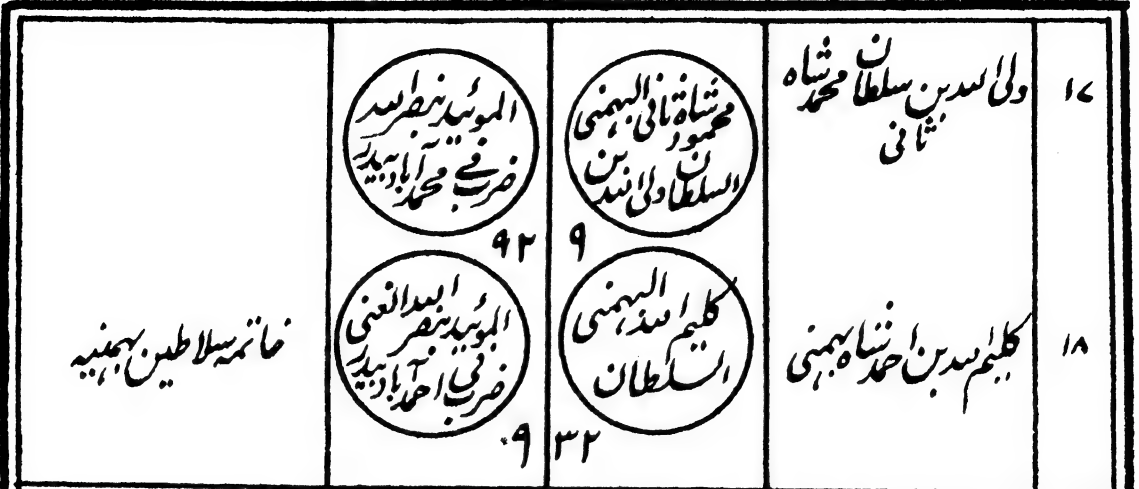 ۱۷
ولی اللہ بن سلطان محمد شاہ
ثانی
محمود شاہ ثانی البہمنی
السلطان ولی اللہ بن
۹
الموئید بنصر اللہ
ضرب فی محمد آباد بیدر
۹۲
۱۸
کلیم اللہ بن احمد شاہ بہمنی
کلیم اللہ البہمنی
السلطان
۳۲
الموئید بنصر اللہ الغنی
ضرب فی احمد آباد بیدر
۹
خاتمہ سلاطین بہمنیہ